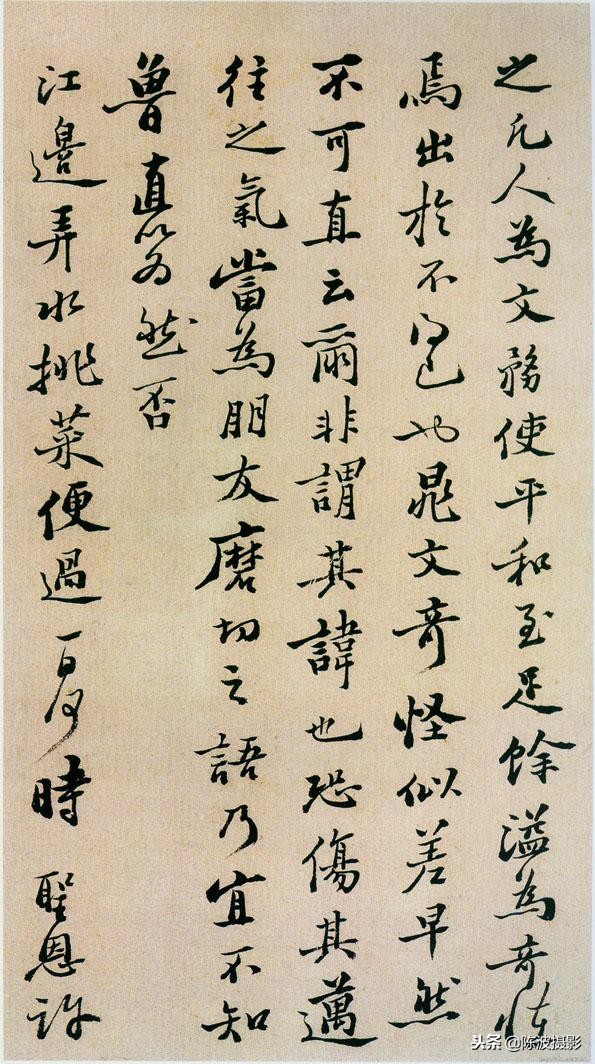 之凡人為文務使平和至足餘溢為奇怪
焉出於不得已也晁文奇怪似差早然
不可直云爾非謂其諱也恐傷其邁
往之氣當為朋友磨切之語乃宜不知
魯直以為然否
江邊弄水挑菜便過一日何時 聖恩許
头条 @陈波摄影